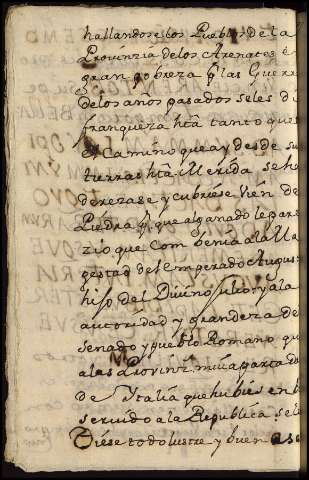 hallandose los Pueblos de la
Provinzia de los Arenates ē
gran pobreza p las Guerra
de los años pasados se les di
franqueza hta tanto que
el Camino que ay desde su
tierras hta Merida se ha
derezase y cubriese bien de
Piedra y, que al ganado le pare
zio que Combenia a la Ma
gestad del emperador August
hijo del Divino Julio, y a la
autoridad y grandeza de
senado y pueblo Romano que
a las Provinz mui aparta
de Italia que hubiesen
servido a la Republica se le
diese todo lustre y buen ase